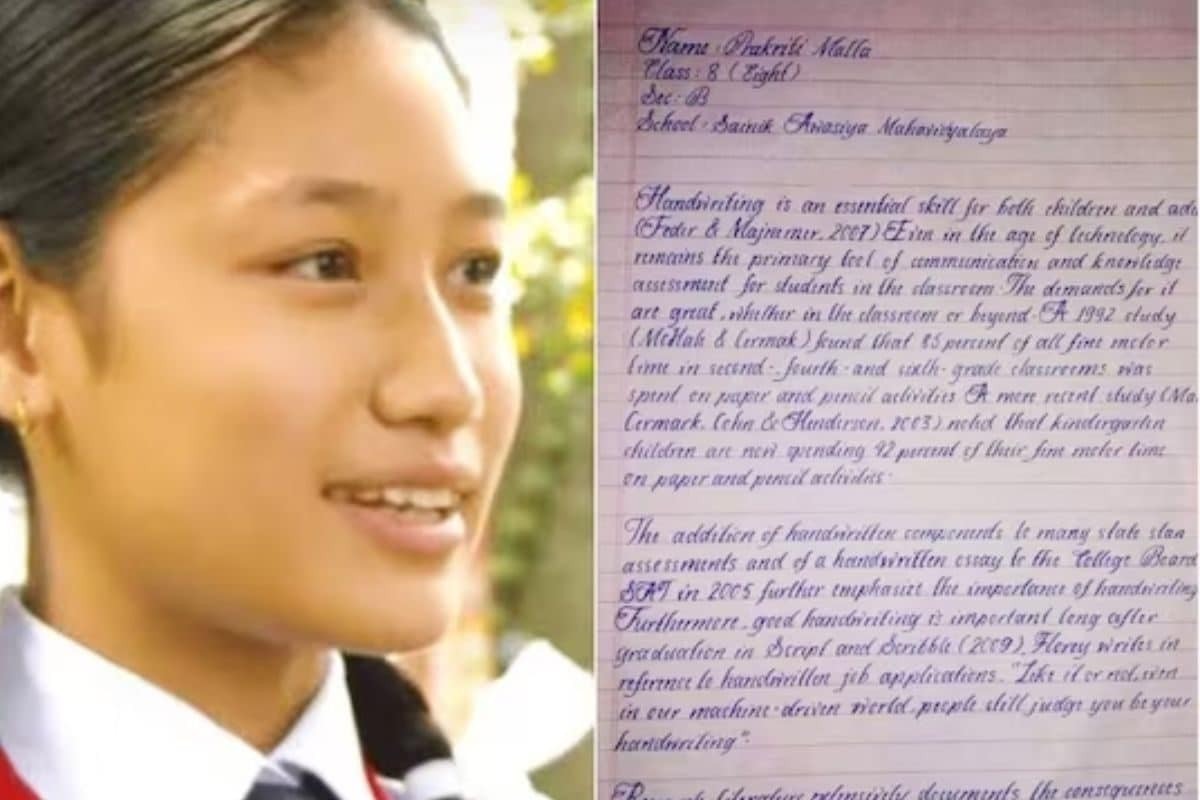 Name: Prakriti Malla
Class: 8 (Eight)
Sec: B
School: Sainik Awasiya Mahavidyalaya
Handwriting is an essential skill for both children and adu
(Feder & Majnemer, 2007) Even in the age of technology, it
remains the primary tool of communication and knowledge
assessment for students in the classroom. The demands for it
are great, whether in the classroom or beyond. A 1992 study
(McHale & Cermak) found that 85 percent of all fine motor
time in second-, fourth- and sixth-grade classrooms was
spent on paper and pencil activities. A more recent study (Ma
Cermark, Cohn & Henderson, 2003) noted that kindergarten
children are now spending 42 percent of their fine motor time
on paper and pencil activities.
The addition of handwritten components to many state stan
assessments and of a handwritten essay to the College Board
SAT in 2005 further emphasize the importance of handwriting
Furthermore, good handwriting is important long after
graduation in Script and Scribble (2009), Florey writes in
reference to handwritten job applications. "Like it or not, even
in our machine-driven world, people still judge you be your
handwriting".
Research literature extensively documents the consequences